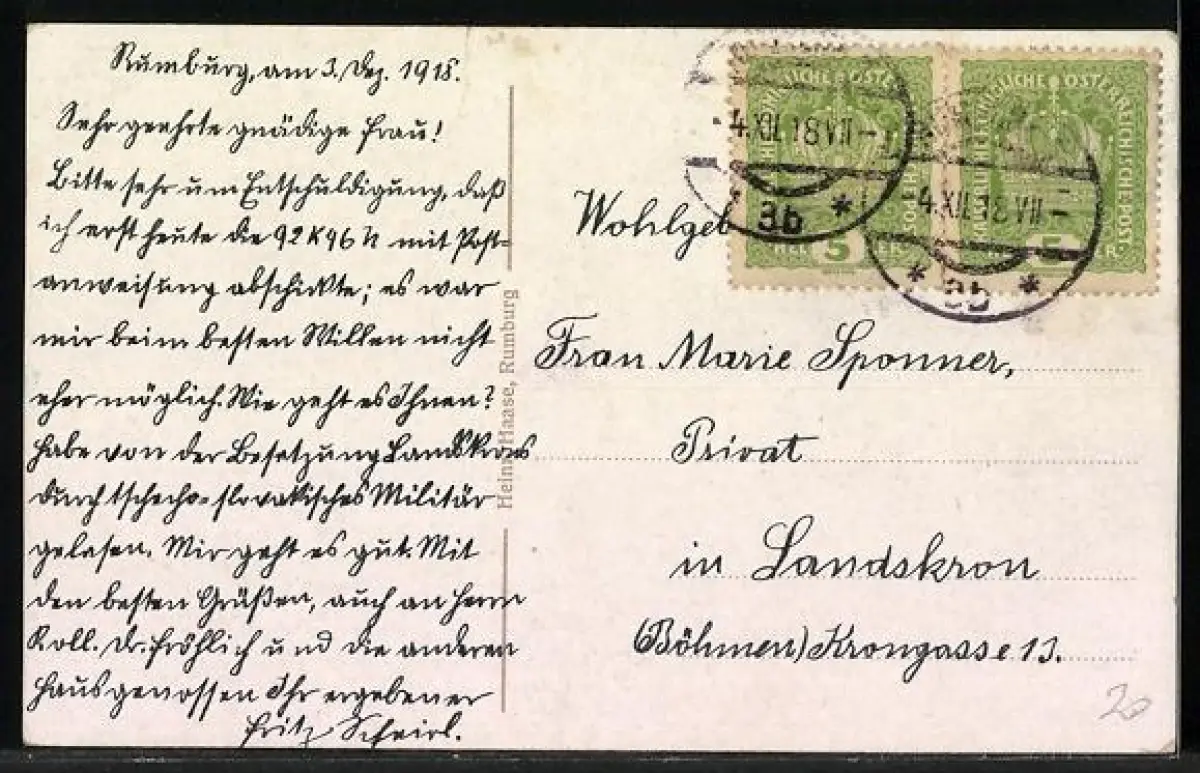 Rumburg, am 3. Dez. 1918.
Sehr geehrte gnädige Frau!
Bitte sehr um Entschuldigung, daß
ich erst heute die 92 K 96 h mit Post-
anweisung abschickte; es war
mir beim besten Willen nicht
eher möglich. Wie geht es Ihnen?
Habe von der Besetzung Landskrons
durch tschecho-slovakisches Militär
gelesen. Mir geht es gut. Mit
den besten Grüßen, auch an Herrn
Koll. Dr. Fröhlich und die anderen
Hausgenossen Ihr ergebener
Fritz Scheirl.
Heinr. Haase, Rumburg
4.XII.18 VII-
3b *
4.XII.18 VII-
* 3b *
5
5
Wohlgeb
Frau Marie Sponner,
Privat
in Landskron
(Böhmen) Krongasse 13.
20